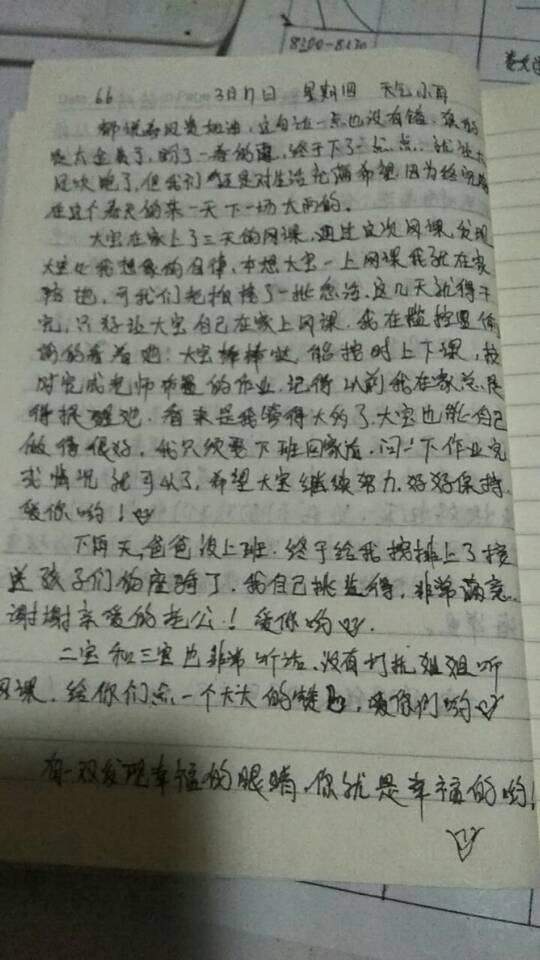 8:00-8:20
66 3月17日 星期四 天气小雨
都说春雨贵如油,这句话一点也没有错,
是太金贵了,终于下了一点点,就被大
风吹跑了,但我们还是对生活充满希望,因为终究
在这个春天的某一天下一场大雨的。
大宝在家上了三天的网课,通过这次网课,发现
大宝比我想象的自律,本想大宝一上网课我就在家
陪她,可我们老板接了一批急活,这几天就得干
完,只好让大宝自己在家上网课,我在监控里偷
偷的看着她:大宝棒棒哒,能按时上下课,按
时完成老师布置的作业,记得以前我在家总是
得提醒她,看来是我管得太多了,大宝也能自己
做得很好,我只须要下班回家后,问一下作业完
成情况就可以了,希望大宝继续努力,好好保持,
爱你哟!
下雨天,爸爸没上班,终于给我按排上了接
送孩子们的座骑了,我自己挑选得,非常满意
谢谢亲爱的老公!爱你哟
二宝和三宝也非常听话,没有打扰姐姐听
网课,给你们点一个大大的赞,爱你们哟
有一双发现幸福的眼睛,你就是幸福的哟!